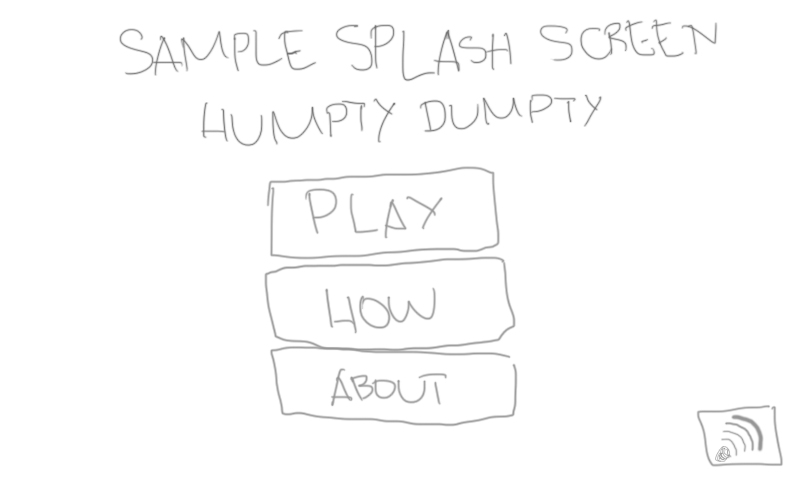 SAMPLE SPLASH SCREEN
HUMPTY DUMPTY
PLAY
HOW
ABOUT